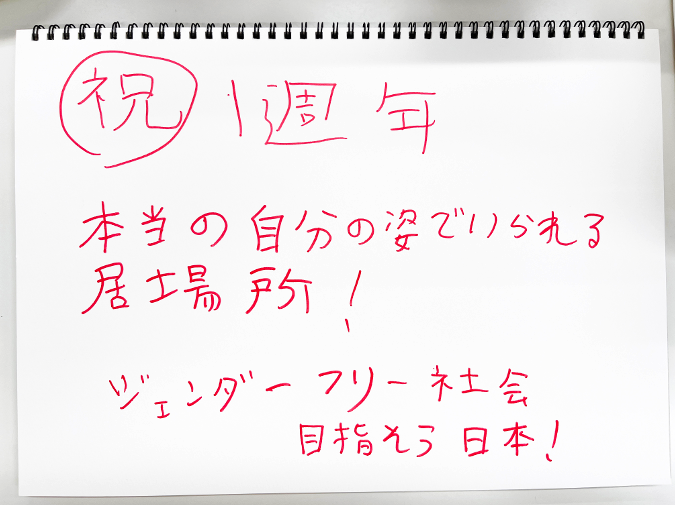 祝 1週年
本当の自分の姿でいられる
居場所!
ジェンダーフリー社会
目指そう日本!